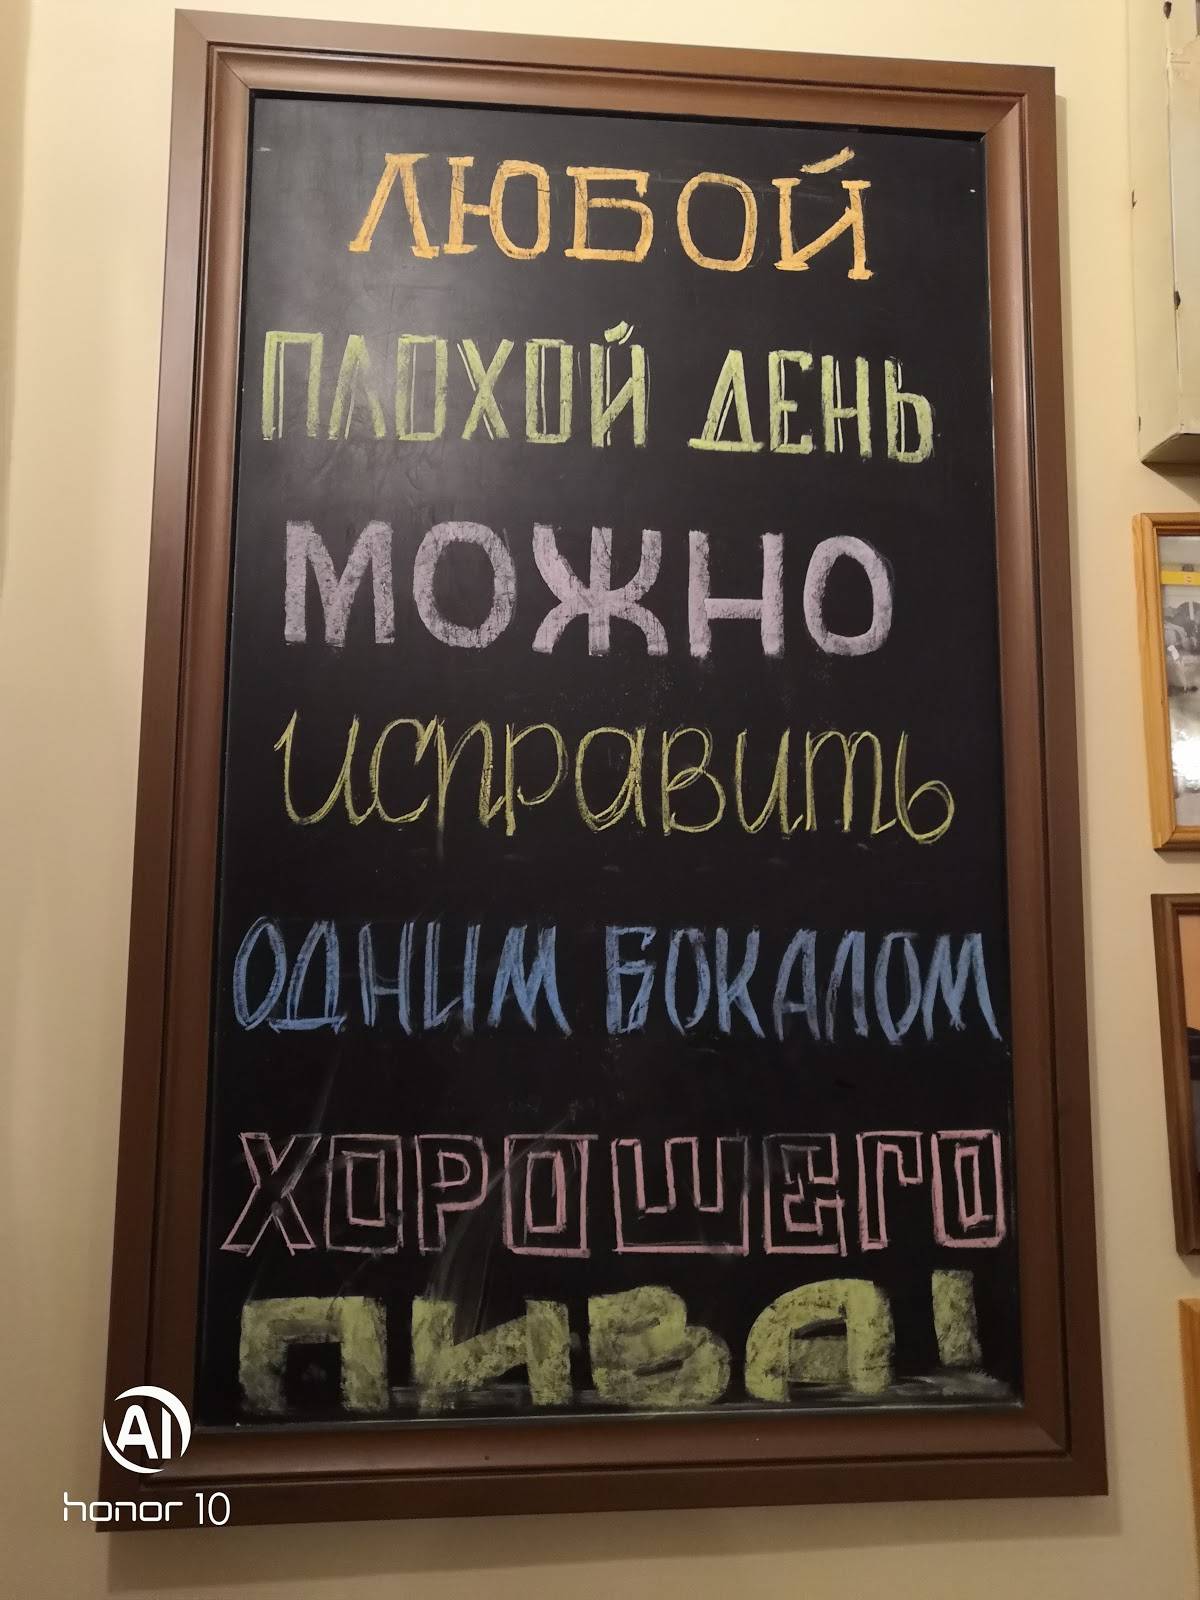 ЛЮБОЙ
ПЛОХОЙ ДЕНЬ
МОЖНО
исправить
ОДНИМ БОКАЛОМ
ХОРОШЕГО
ПИВА!
AI
honor 10